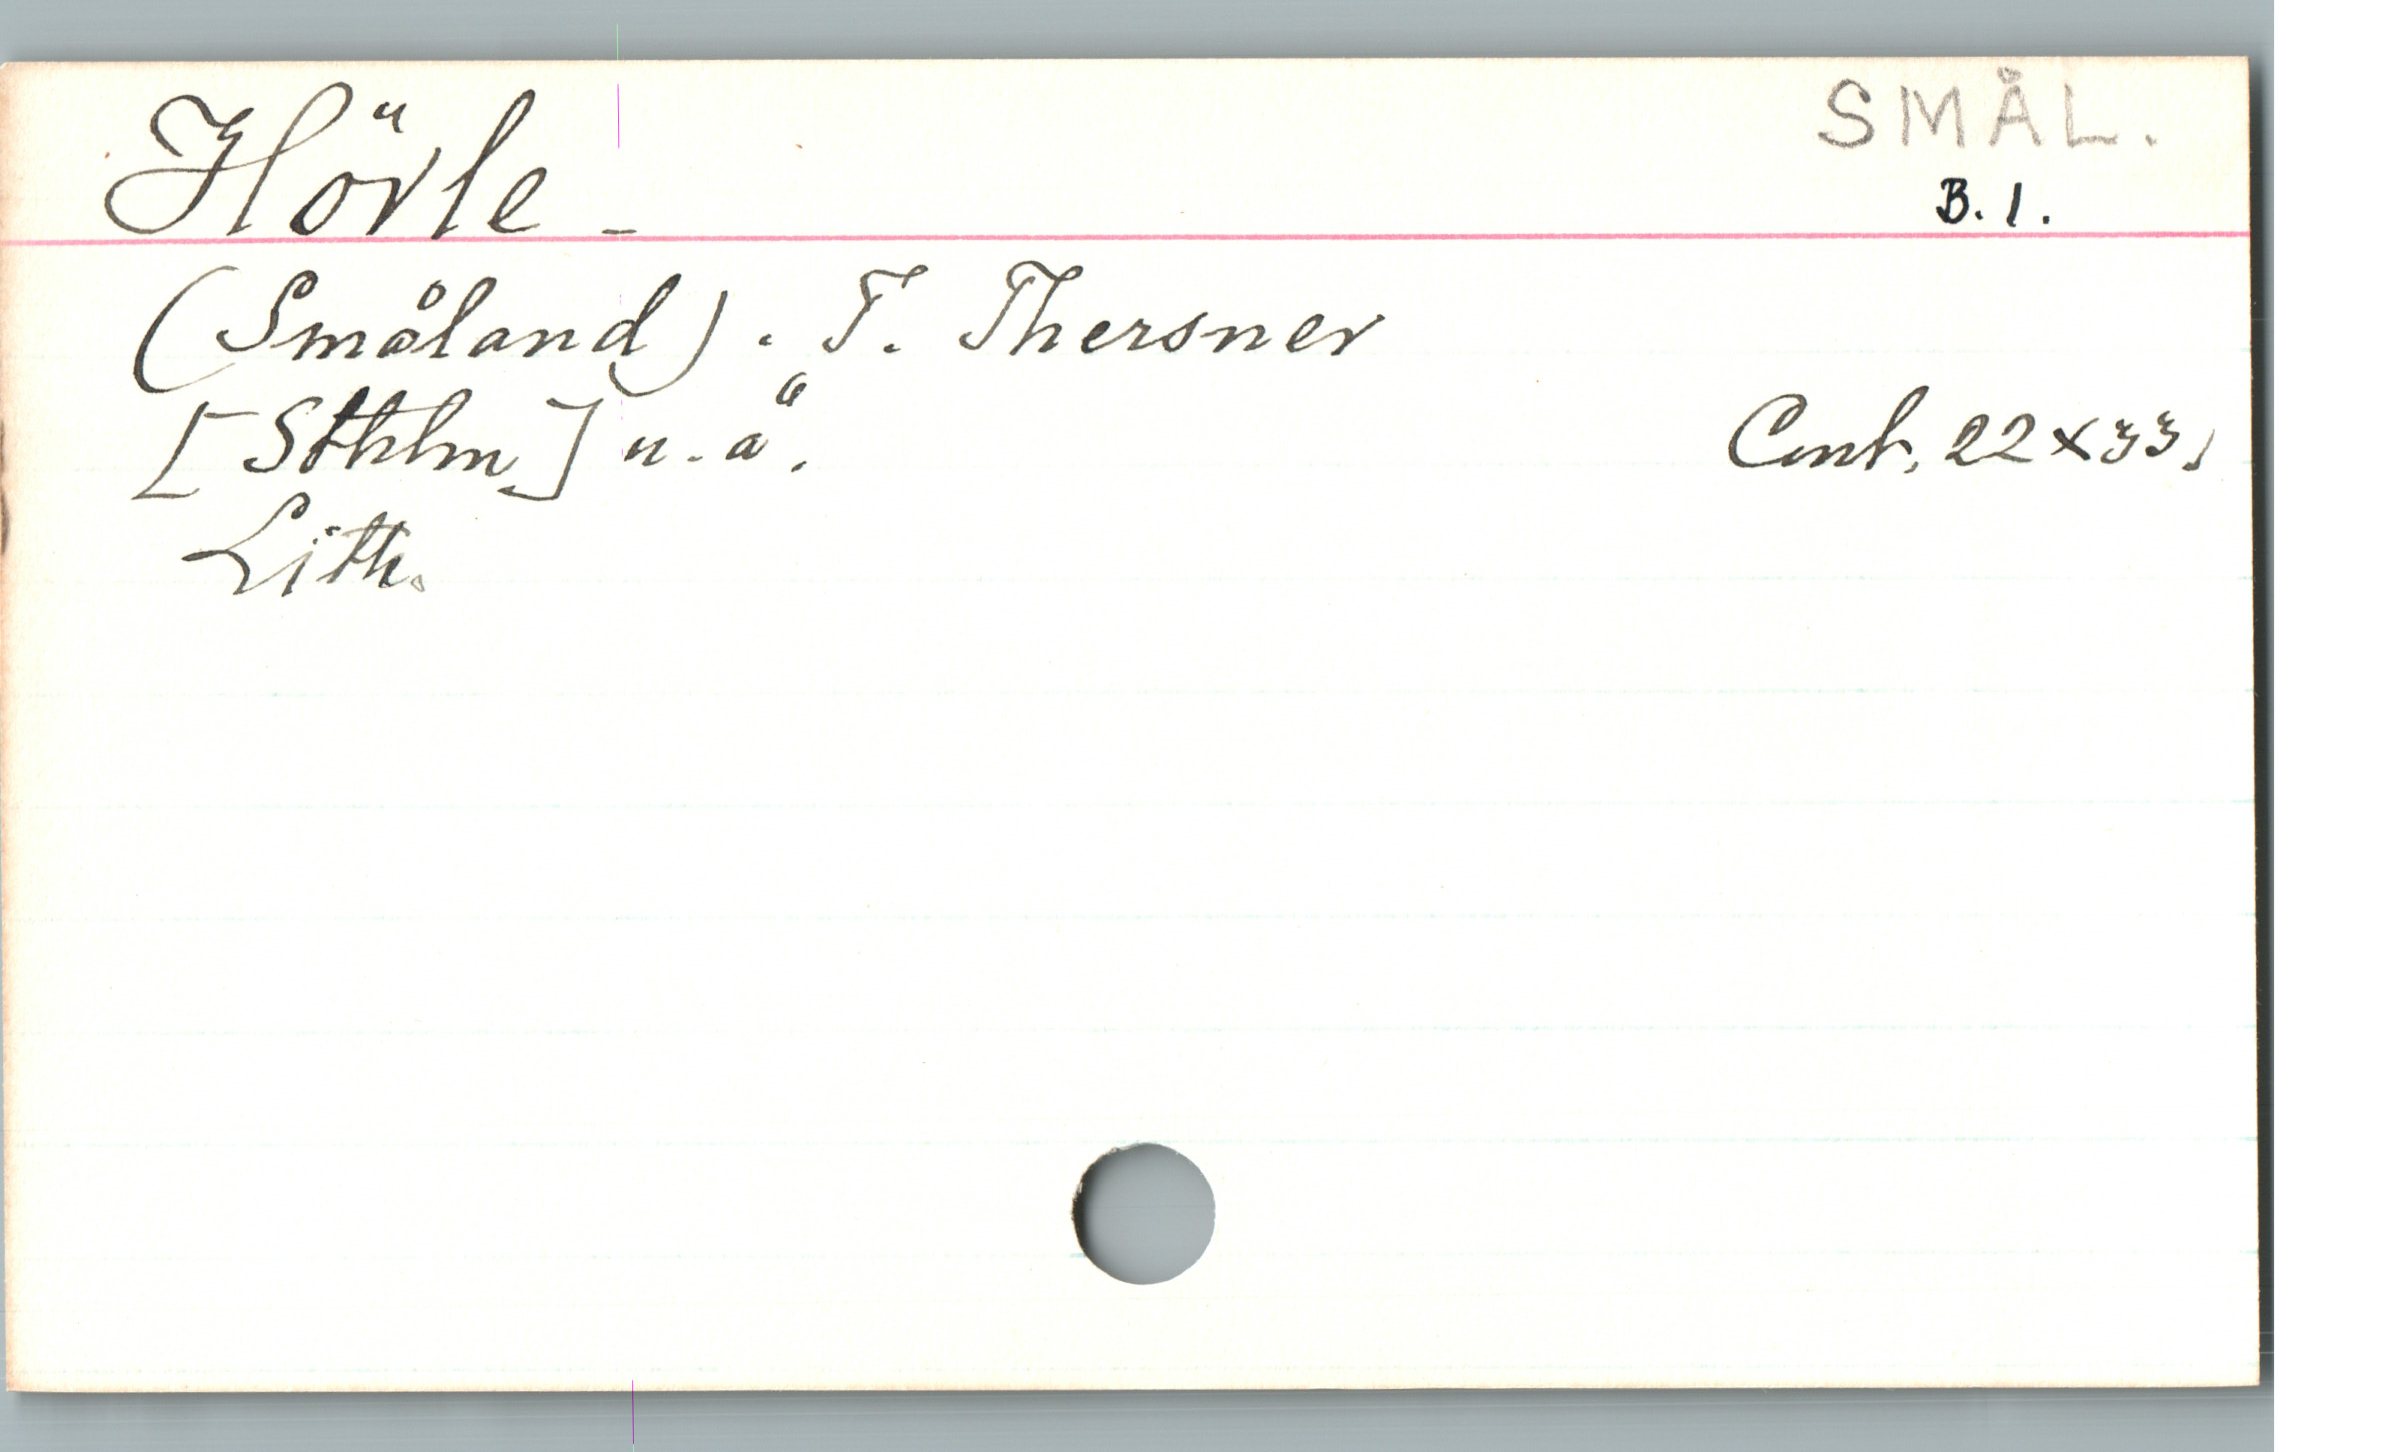 Hörle -
SMÅL.
B. 1.
(Småland). T. Thersner
[Sthlm] u. å.
Cent. 22 x 33.
Lith.